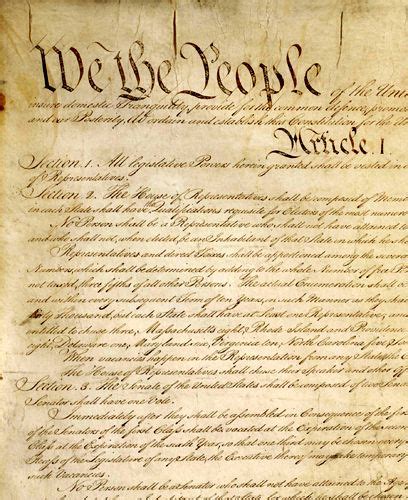 We the People of the Unit
insure domestic Tranquility, provide for the common defence, promo
and our Posterity, do ordain and establish this Constitution for the Un
Article. I.
Section. 1. All legislative Powers herein granted shall be vested in a
of Representatives.
Section. 2. The House of Representatives shall be composed of Mem
in each State shall have Qualifications requisite for Electors of the most numero
No Person shall be a Representative who shall not have attained to
and who shall not, when elected, be an Inhabitant of that State in which he sha
Representatives and direct Taxes shall be apportioned among the severa
Numbers, which shall be determined by adding to the whole Number of free P
not taxed, three fifths of all other Persons. The actual Enumeration shall b
and within every subsequent Term of ten Years, in such Manner as they sha
thirty Thousand, but each State shall have at Least one Representative; and
entitled to chuse three, Massachusetts eight, Rhode Island and Providence
eight, Delaware one, Maryland six, Virginia ten, North Carolina five, So
When vacancies happen in the Representation from any State, the Ex
The House of Representatives shall chuse their Speaker and other Off
Section. 3. The Senate of the United States shall be composed of two Sena
Senator shall have one Vote.
Immediately after they shall be assembled in Consequence of the firs
of the Senators of the first Class shall be vacated at the Expiration of the
Class at the Expiration of the sixth Year, so that one third may be chosen every
Recess of the Legislature of any State, the Executive thereof may make temporary
such Vacancies.
No Person shall be a Senator who shall not have attained to the Age